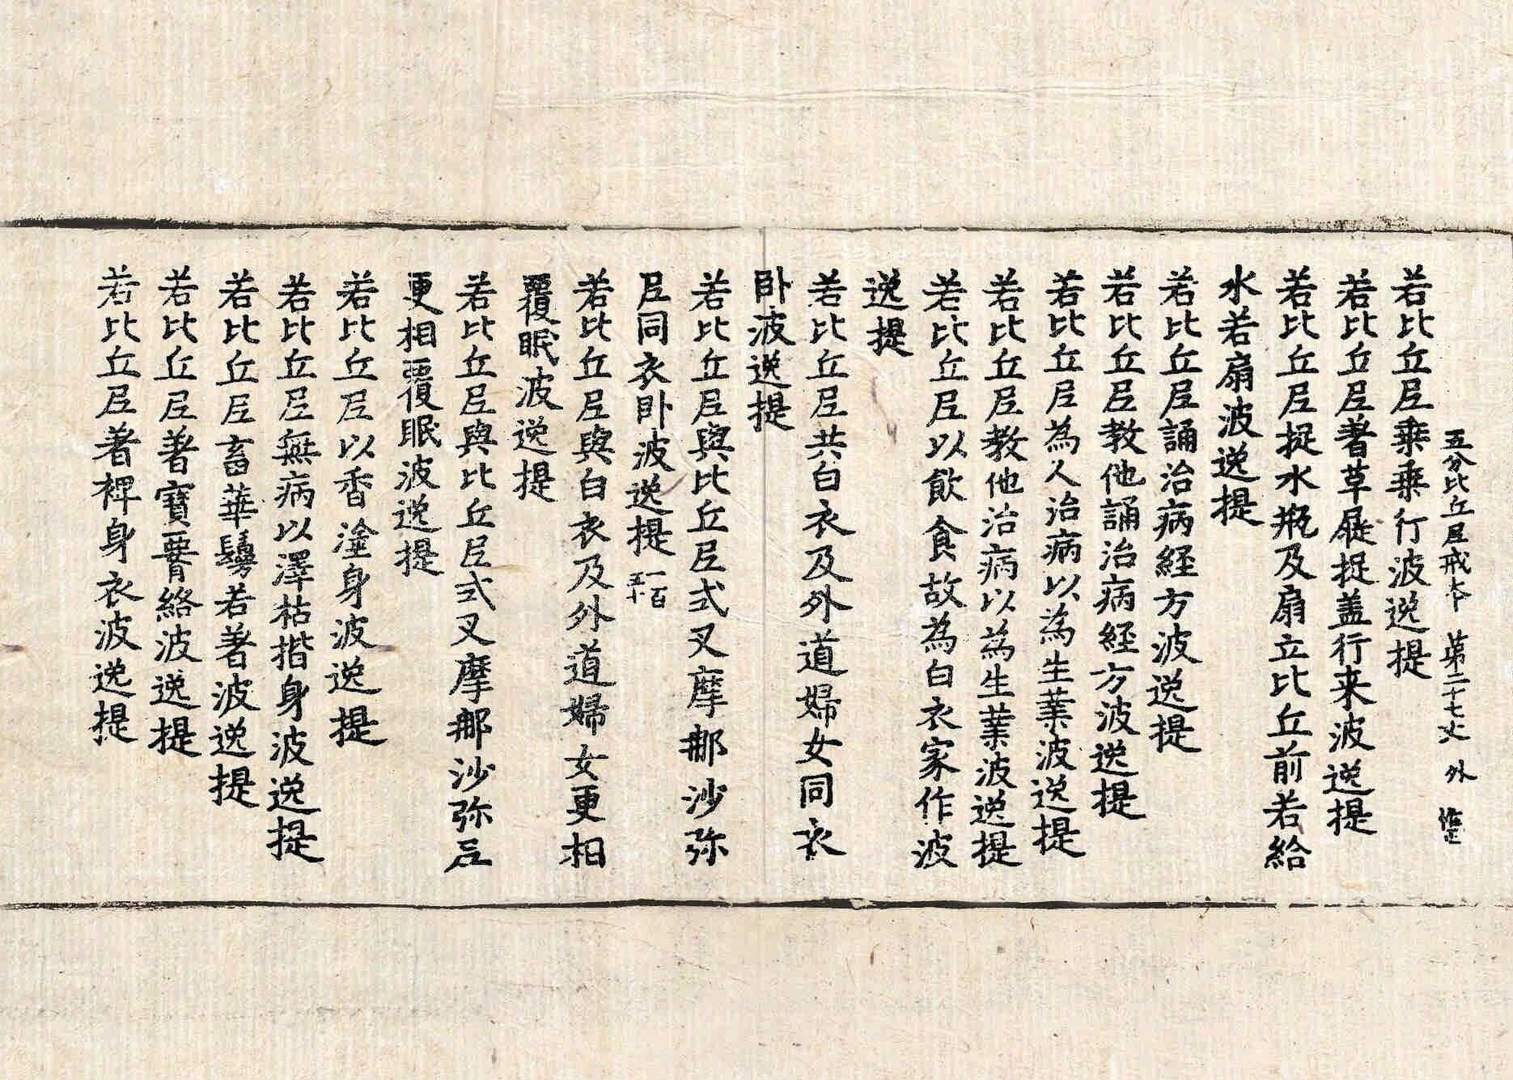 五分比丘尼戒本 第二十七丈 外
若比丘尼乗乗行波逸提
若比丘尼著草屣捉盖行来波逸提
若比丘尼捉水瓶及扇立比丘前若給
水若扇波逸提
若比丘尼誦治病経方波逸提
若比丘尼教他誦治病経方波逸提
若比丘尼為人治病以為生業波逸提
若比丘尼教他治病以為生業波逸提
若比丘尼以飲食故為白衣家作波
逸提
若比丘尼共白衣及外道婦女同衣
卧波逸提
若比丘尼與比丘尼式叉摩那沙弥
尼同衣卧波逸提 一百五十
若比丘尼與白衣及外道婦女更相
覆眠波逸提
若比丘尼與比丘尼式叉摩那沙弥尼
更相覆眠波逸提
若比丘尼以香塗身波逸提
若比丘尼無病以澤枯揩身波逸提
若比丘尼畜華鬘若著波逸提
若比丘尼著寶䙅絡波逸提
若比丘尼著裨身衣波逸提